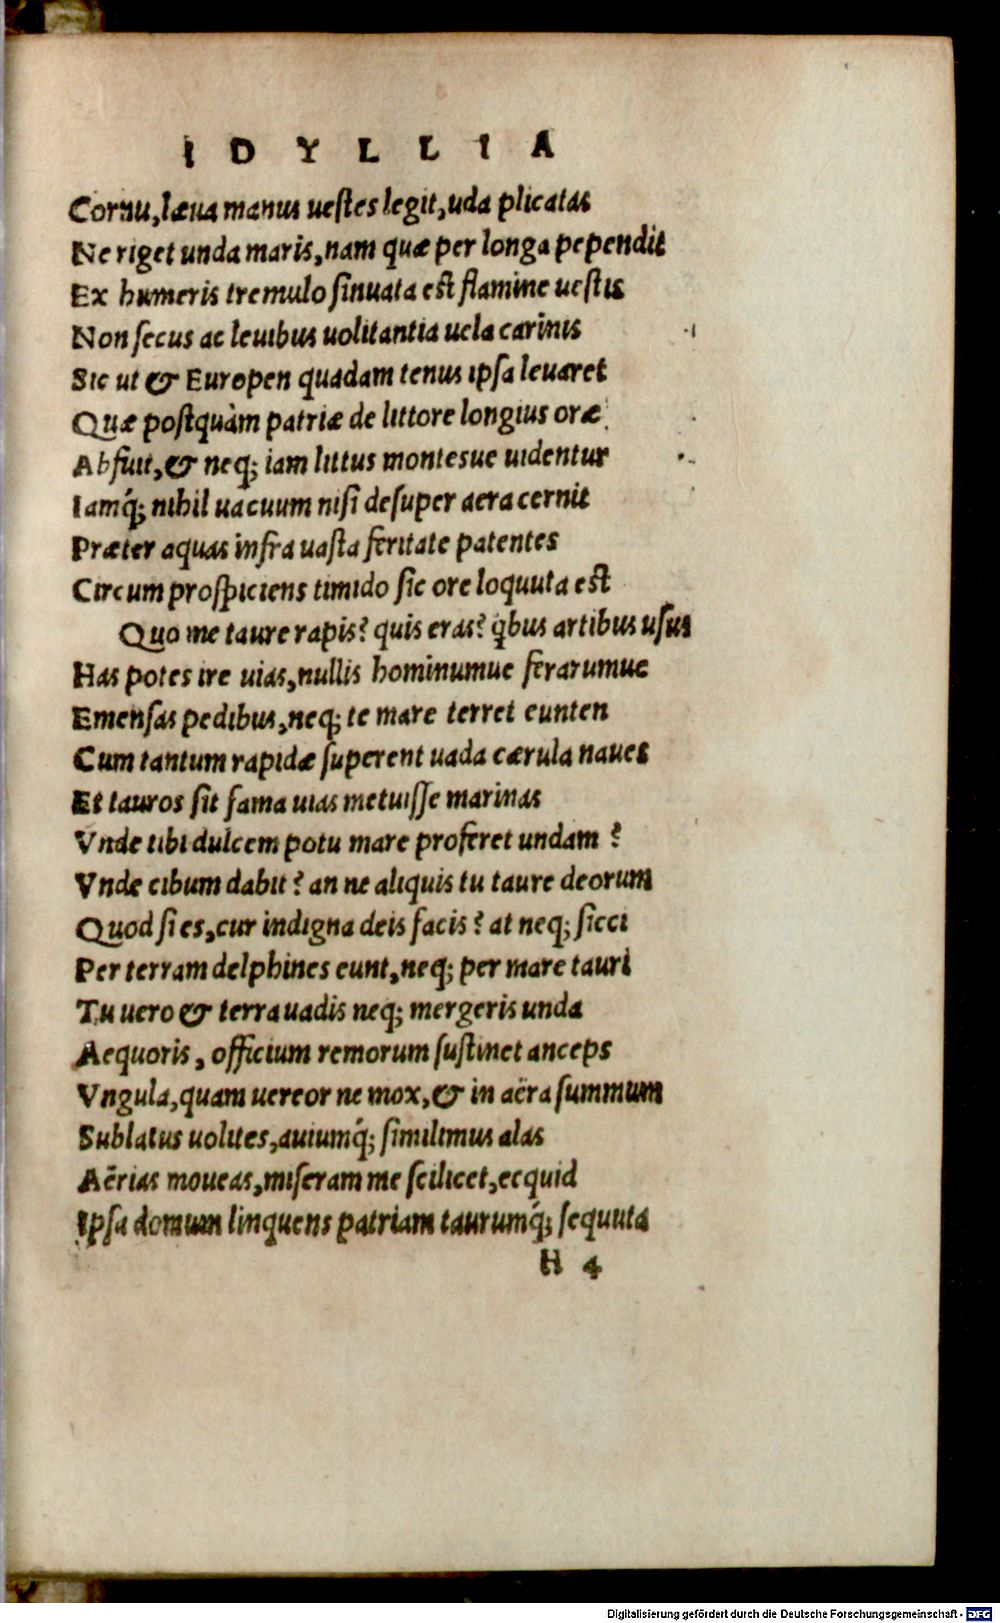 IDYLLIA
Cornu, læua manus uestes legit, uda plicatas
Ne riget unda maris, nam quæ per longa pependit
Ex humeris tremulo sinuata est flamine uestis
Non secus ac leuibus uolitantia uela carinis
Sic ut & Europen quadam tenus ipsa leuaret
Quæ postquàm patriæ de littore longius oræ
Abfuit, & neq; iam littus montesue uidentur
Iamq́; nihil uacuum nisi desuper aera cernit
Præter aquas infra uasta feritate patentes
Circum prospiciens timido sic ore loquuta est
Quo me taure rapis? quis eras? q̇bus artibus usus
Has potes ire uias, nullis hominumue ferarumue
Emensas pedibus, neq; te mare terret eunten
Cum tantum rapidæ superent uada cærula naues
Et tauros sit fama uias metuisse marinas
Vnde tibi dulcem potu mare proferet undam ?
Vnde cibum dabit ? an ne aliquis tu taure deorum
Quod si es, cur indigna deis facis ? at neq; sicci
Per terram delphines eunt, neq; per mare tauri
Tu uero & terra uadis neq; mergeris unda
Aequoris, officium remorum sustinet anceps
Vngula, quam uereor ne mox, & in aëra summum
Sublatus uolites, auiumq́; simillimus alas
Aërias moueas, miseram me scilicet, ecquid
Ipsa domum linquens patriam taurumq́; sequuta
H 4
Digitalisierung gefördert durch die Deutsche Forschungsgemeinschaft - DFG